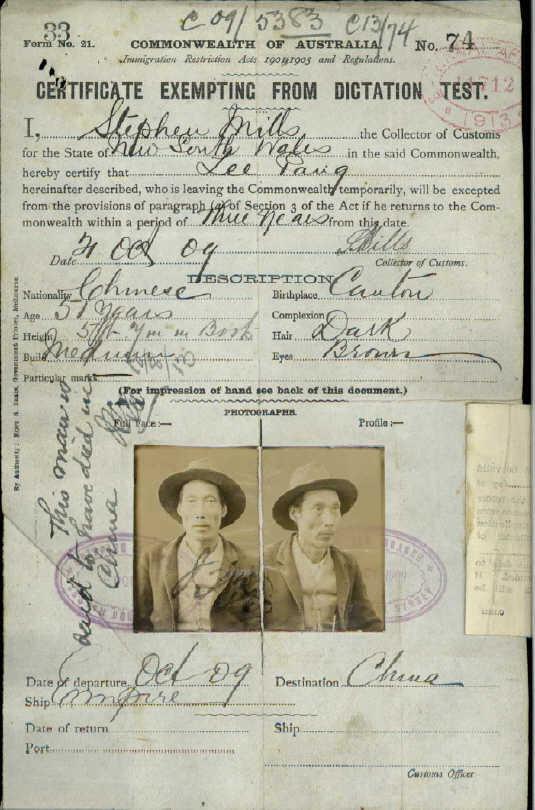 33
C 09/5383 C13/74
Form No. 21.
COMMONWEALTH OF AUSTRALIA.
No. 74
Immigration Restriction Acts 1901-1905 and Regulations.
CERTIFICATE EXEMPTING FROM DICTATION TEST.
1913
I, Stephen Mills the Collector of Customs
for the State of New South Wales in the said Commonwealth,
hereby certify that Lee Pang
hereinafter described, who is leaving the Commonwealth temporarily, will be excepted
from the provisions of paragraph (a) of Section 3 of the Act if he returns to the Com-
monwealth within a period of three years from this date.
Date Oct 09
S Mills
Collector of Customs.
DESCRIPTION
Nationality Chinese
Birthplace Canton
Age 51 years
Complexion
Height 5ft in Boots
Hair Dark
Build Medium
Eyes Brown
Particular marks
(For impression of hand see back of this document.)
PHOTOGRAPHS.
Full Face :—
Profile :—
This man is
said to have died in
China
Date of departure Oct 09
Destination China
Ship Empire
Date of return
Ship
Port
Customs Officer